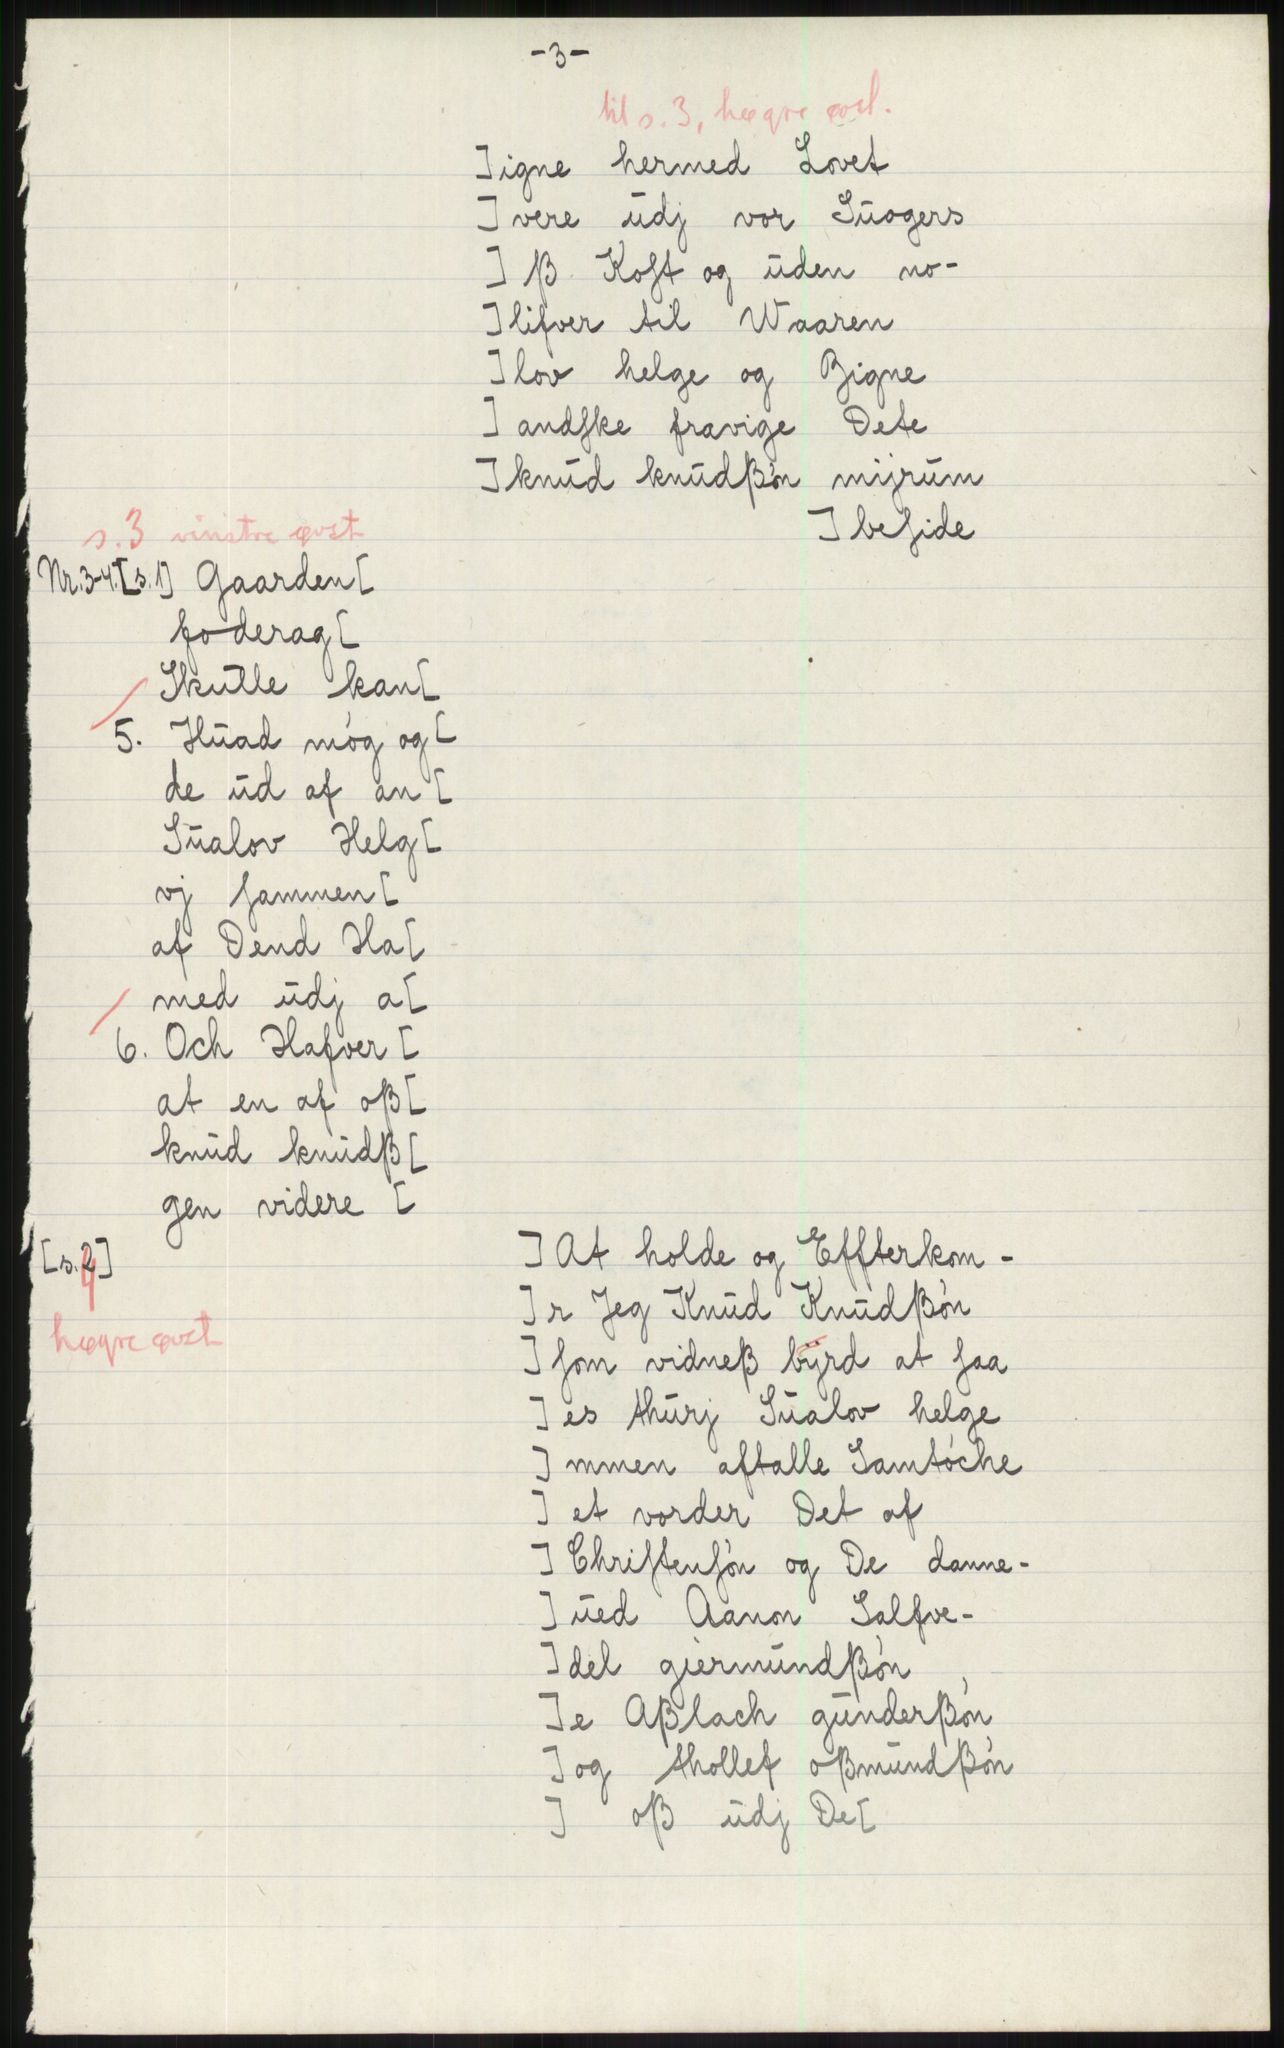 -3-
til s. 3, høgre øvst.
]igne hermed Lovet
]vere ŭdj vor Sŭogers
] ß Koſt og ŭden no-
]lifver til Waaren
]lov helge og Bigne
]andſke fravige Dete
]knŭd knŭdßón mijrŭm
]beſide
s. 3 vinstre øvst
Nr. 3-4. [s. 1] Gaarden[
foderag[
Skŭlle kan[
5. Hŭad móg og[
de ŭd af an[
Sŭalov Helg[
vj ſammen[
af Dend Ha[
med ŭdj a[
6. Och Hafver [
at en af oß[
knŭd knŭdß[
gen videre [
[s. 4]
høgre øvst
]At holde og Effterkom-
]r Jeg Knŭd Knŭdßón
]ſom vidneß bÿrd at ſaa
]es thŭrj Sŭalov helge
]mmen aftalle Samtóche
] et vorder Det af
]Chriſtenſón og De danne-
]ŭed Aanon Salfve-
]del giermŭndßón
]e Aßlach gŭnderßón
]og thollef oßmŭndßón
] oß ŭdj De[